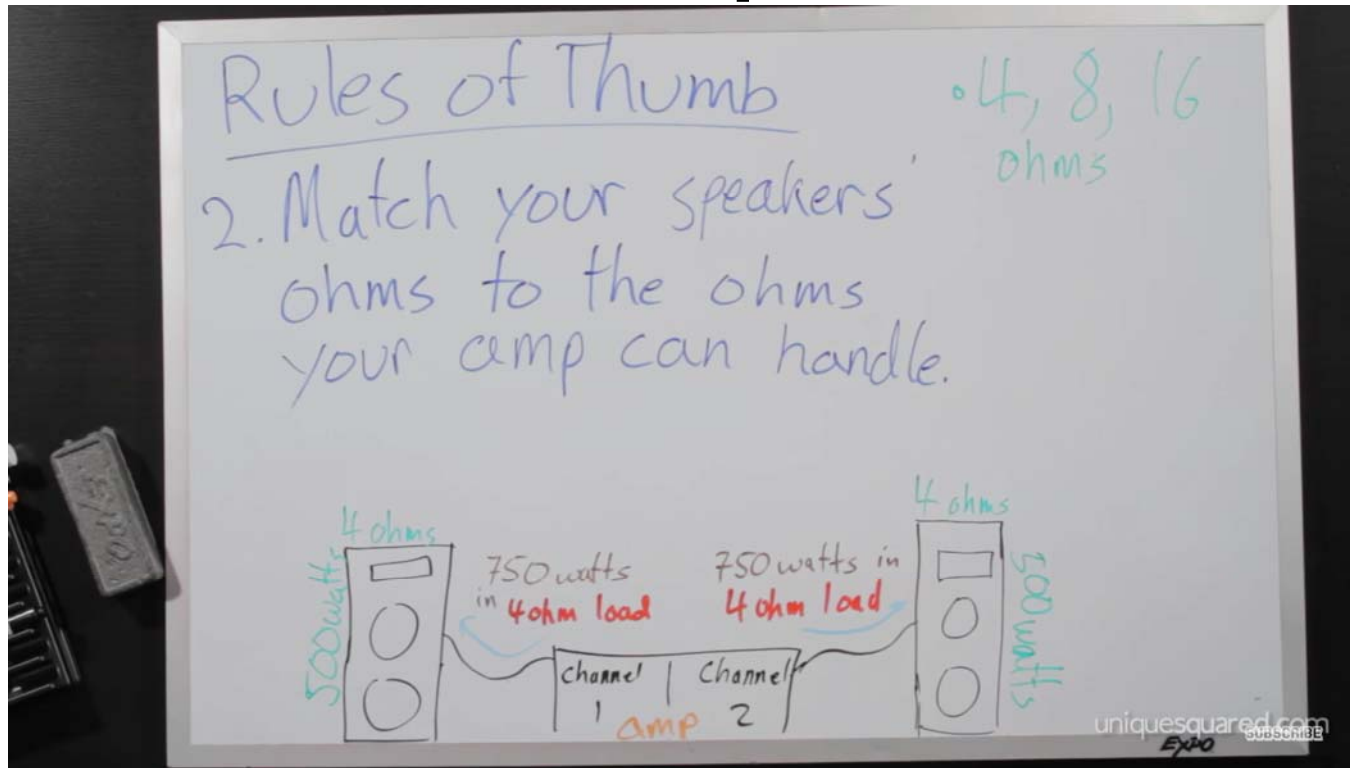 Rules of Thumb
• 4, 8, 16
ohms
2. Match your speakers'
ohms to the ohms
your amp can handle.
4 ohms
500 watts
750 watts
in 4 ohm load
750 watts in
4 ohm load
4 ohms
500 watts
Channel
1
Channel
2
amp
Expo
uniquesquared.com
SUBSCRIBE
EXPO